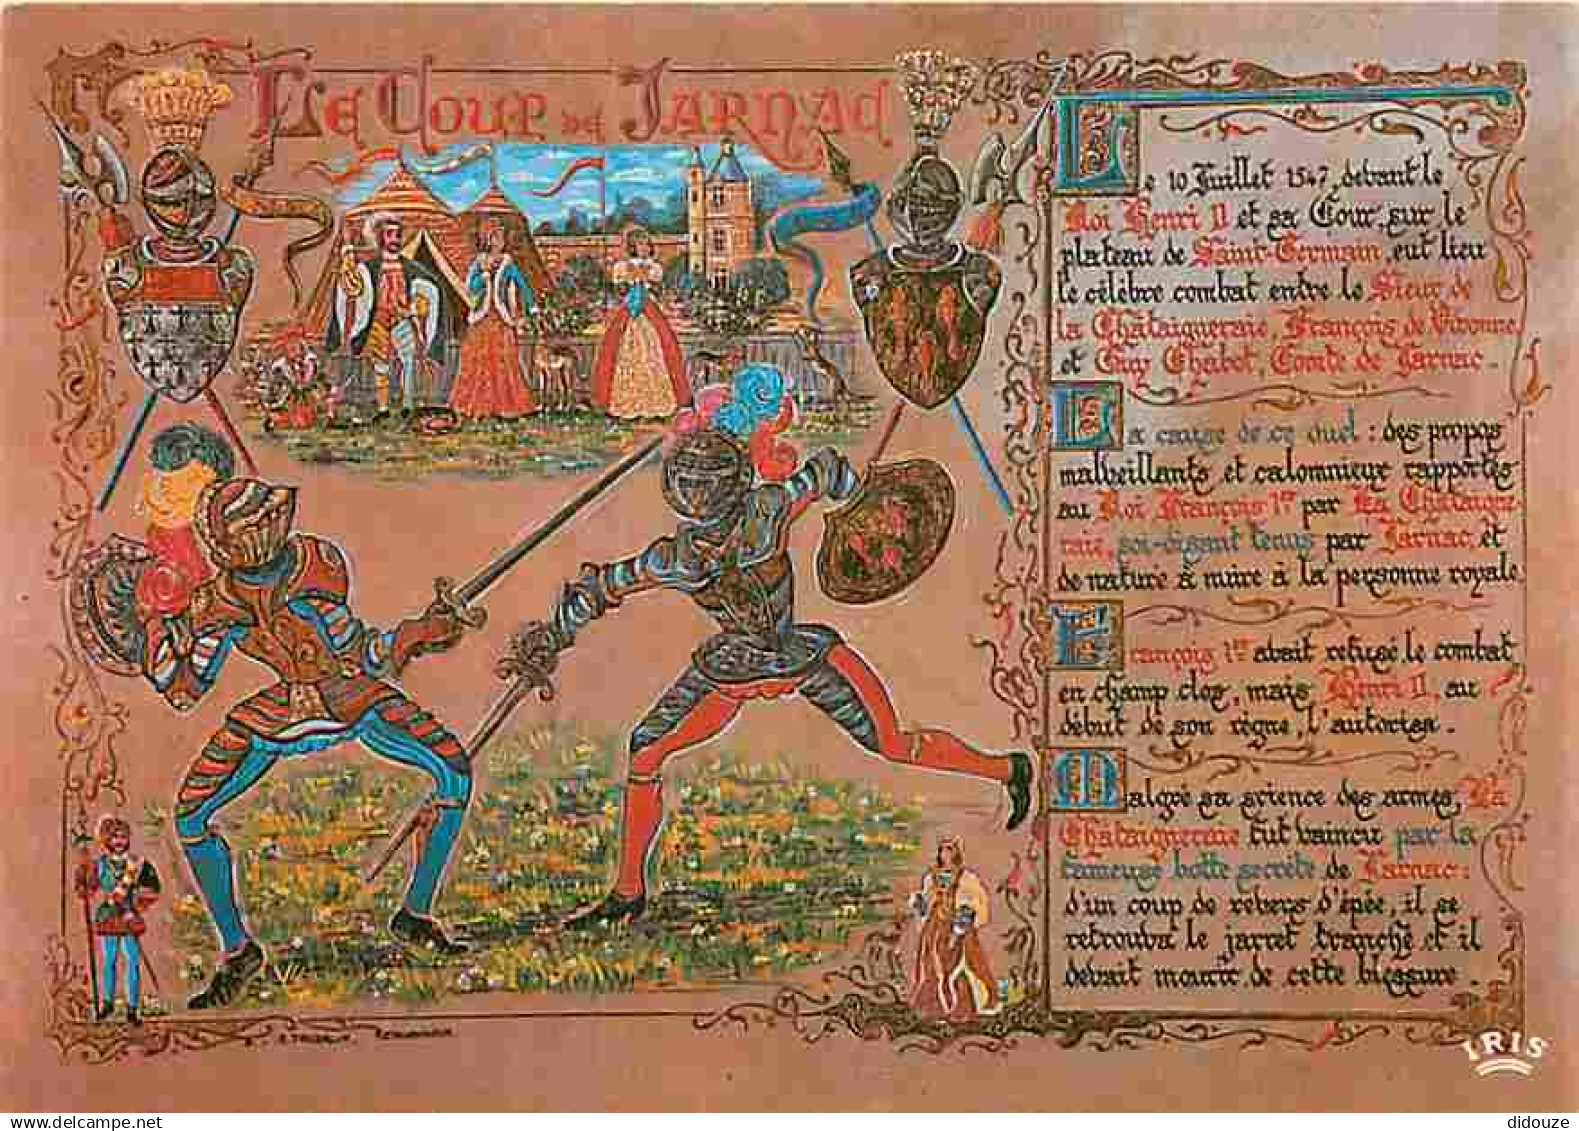 Le Coup de Jarnac
Le 10 Juillet 1547, devant le
Roi Henri II et sa Cour, sur le
plateau de Saint-Germain, eut lieu
le célèbre combat entre le Sieur de
la Châtaigneraie, François de Vivonne,
et Guy Chabot, Comte de Jarnac.
La cause de ce duel : des propos
malveillants et calomnieux rapportés
au Roi François 1er par La Châtaigne
raie, soi-disant tenus par Jarnac, et
de nature à nuire à la personne royale
François 1er avait refusé le combat
en champ clos, mais Henri II, au
début de son règne, l'autorisa.
Malgré sa science des armes, La
Châtaigneraie fut vaincu par la
fameuse botte secrète de Jarnac:
d'un coup de revers d'épée, il se
retrouva le jarret tranché et il
devait mourir de cette blessure.
IRIS
didouze